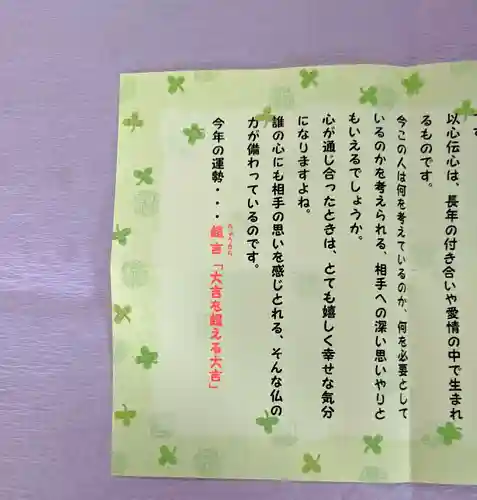 す。
以心伝心は、長年の付き合いや愛情の中で生まれ
るものです。
今この人は何を考えているのか、何を必要として
いるのかを考えられる、相手への深い思いやりと
もいえるでしょうか。
心が通じ合ったときは、とても嬉しく幸せな気分
になりますよね。
誰の心にも相手の思いを感じとれる、そんな仏の
力が備わっているのです。
今年の運勢・・・超吉「大吉を超える大吉」